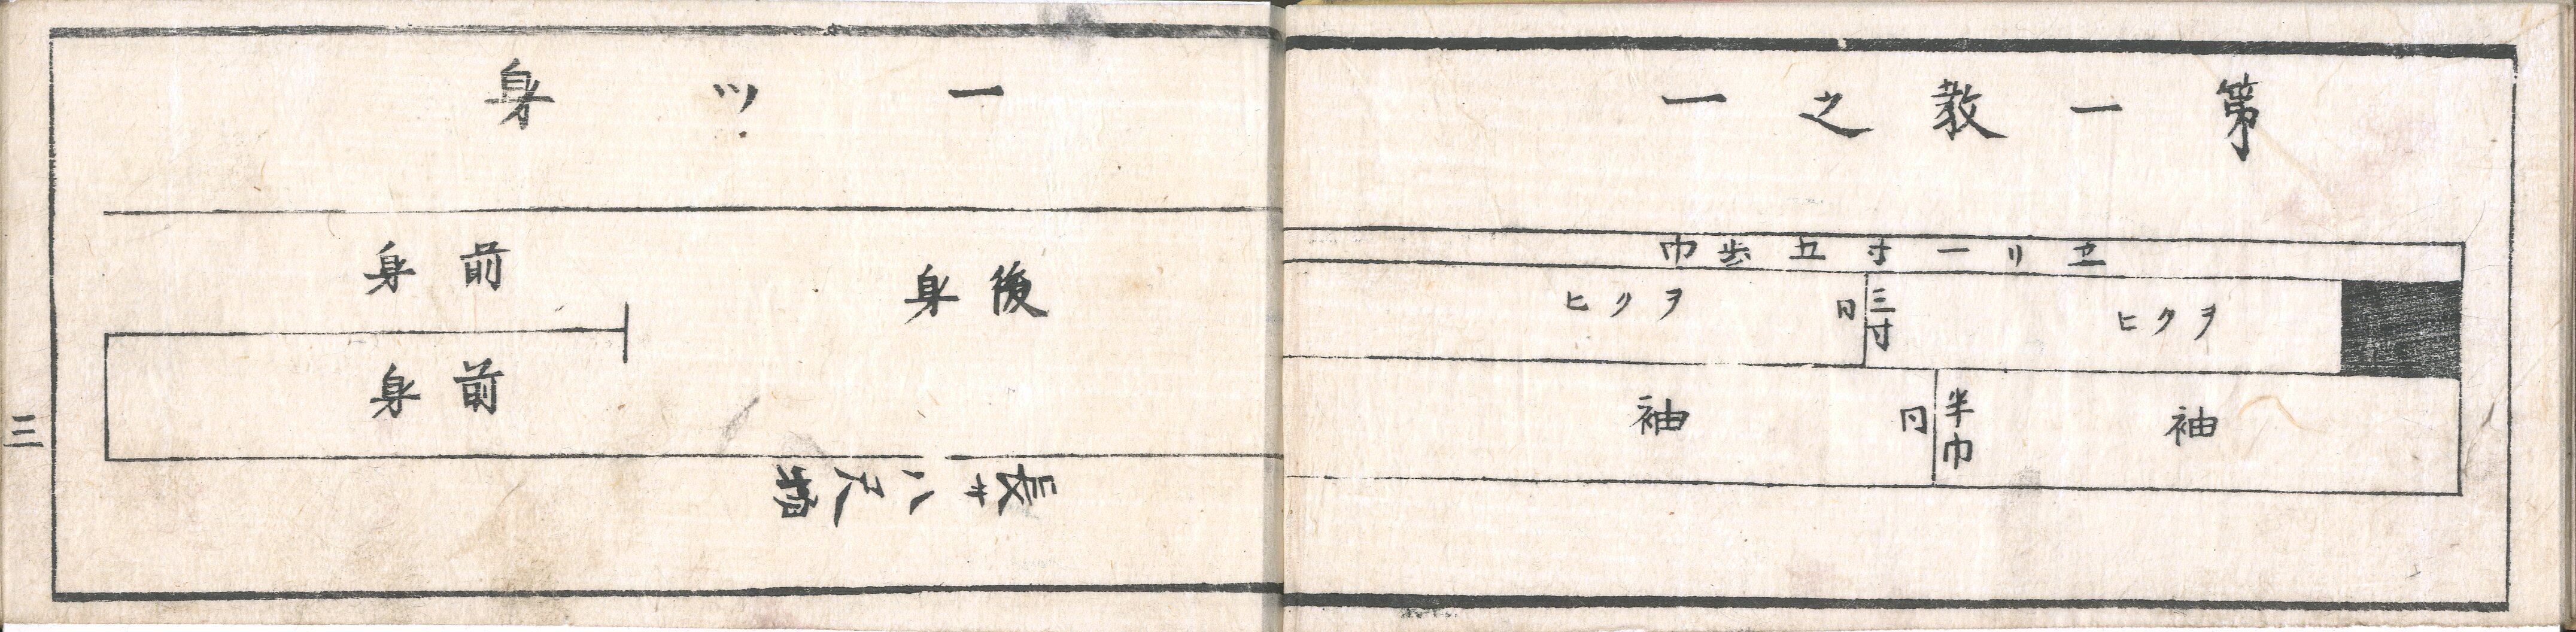 第一教之一
ヱリ一寸五歩巾
ヲクヒ
三寸
ヲクヒ
袖
半巾
袖
一ツ身
後身
前身
前身
長サ八尺
三